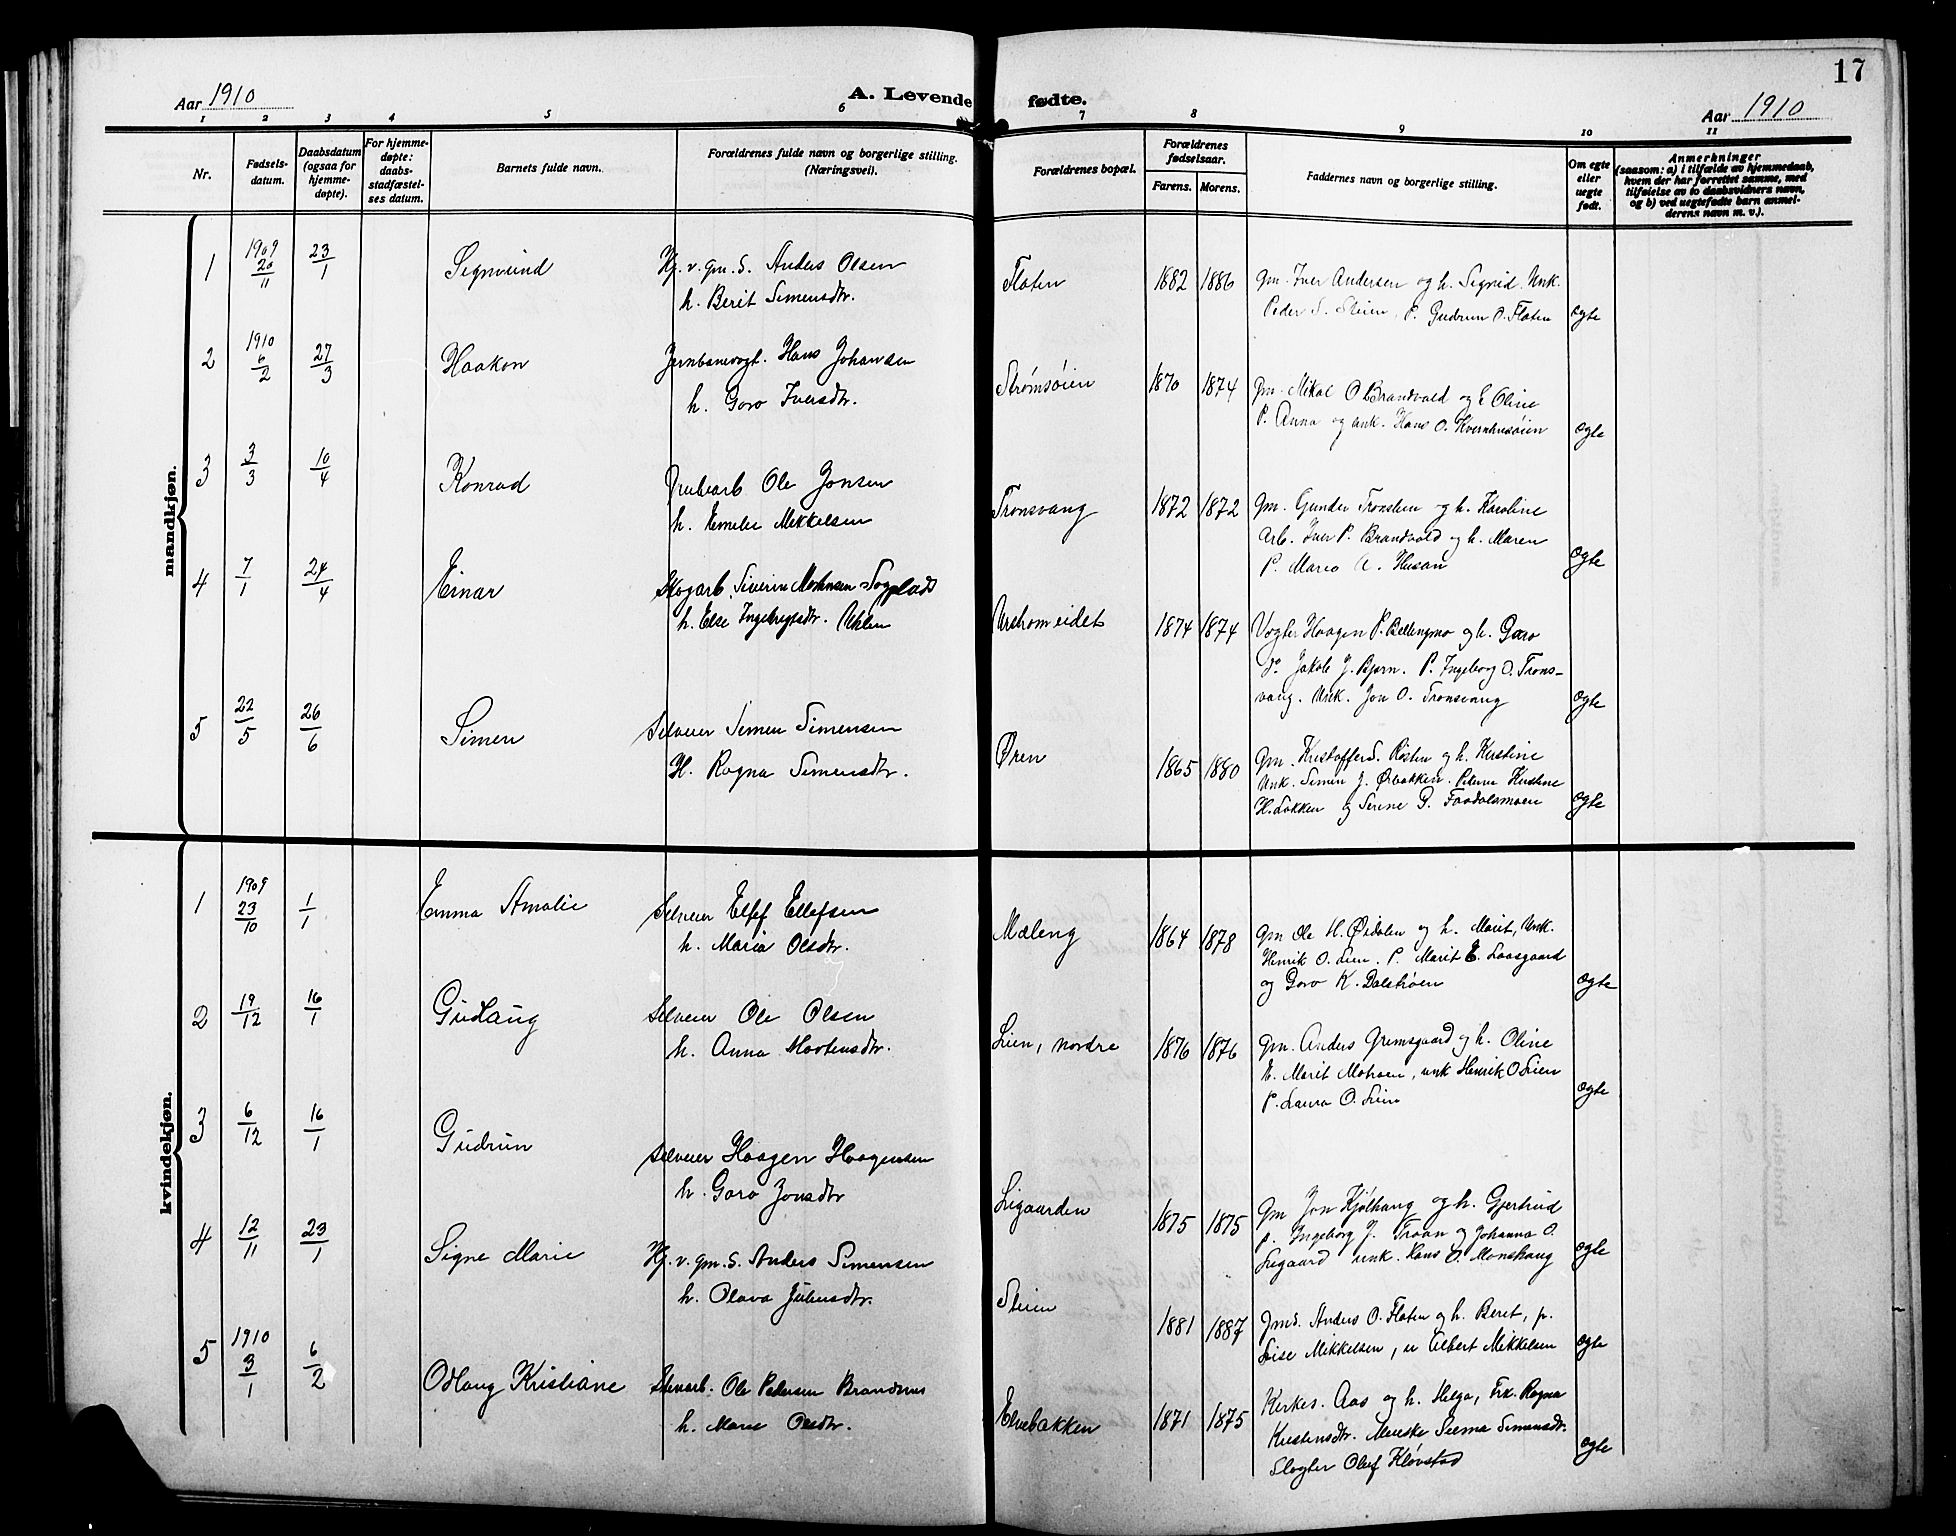 17
Aar 1910
A. Levende fødte.
Aar 1910
1 2 3 4 5 6 7 8 9 10 11
Nr.
Fødsels-
datum.
Daabsdatum
(ogsaa for
hjemme-
døpte).
For hjemme-
døpte:
daabs-
stadfæstel-
ses datum.
Barnets fulde navn.
Forældrenes fulde navn og borgerlige stilling.
(Næringsvei).
Forældrenes bopæl.
Forældrenes
fødselsaar.
Farens. Morens.
Faddernes navn og borgerlige stilling.
Om egte
eller
uegte
født.
Anmerkninger
(saasom: a) i tilfælde av hjemmedaab,
hvem der har forrettet samme, med
tilføielse av to daabsvidners navn,
og b) ved uegtefødte barn anmel-
derens navn m. v.).
mandkjøn.
1 1909 20/11 23/1 Sigmund Hj. v. gm. S. Anders Olsen
h. Berit Simensdtr.
Floten 1882 1886 gm. Iver Andersen og h. Sigrid. Unk.
Peder S. Steien, P. Gudrun O. Floten egte
2 1910 6/2 27/3 Haakon Jernbanevogt. Hans Johansen
h. Goro Iversdtr.
Strømsøien 1870 1874 gm. Mikal O Brandvold og h Oline
P. Anna og unk. Hans O. Kvernhusøien egte
3 3/3 10/4 Konrad Grubearb Ole Jonsen
h. Emelie Mikkelsen
Tronsvang 1872 1872 gm. Gunder Tronslien og h. Karoline
Arb. Iver P. Brandvold og h. Maren
P. Maria A. Husan egte
4 7/1 24/4 Einar Skogarb. Siverin Mortensen Sagplads
h. Else Ingebrigtsdtr. Uhlen
eidet 1874 1874 Vogter Haagen P. Bellingmo og h. Goro
do Jakob J. Bjørn. P. Ingeborg O. Trons-
vang. Unk. Jon O. Tronsvang egte
5 22/5 26/6 Simen Selveier Simen Simensen
H. Ragna Simensdtr.
Øren 1865 1880 gm. Kristoffer S. Røsten og h. Kristine
Unk. Simen J. Ørbakken. Pikerne Kristine
H. Løkken og Serine P. Faadalsmoen egte
kvindekjøn.
1 1909 23/10 1/1 Emma Amalie Selveier Ellef Ellefsen
h. Maria Olsdtr.
Mæleng 1864 1878 gm Ole H. Øidalen og h. Marit, Unk.
Henrik O. Lien. P. Marit E. Laasgaard
og Goro K. Dalstrøen egte
2 19/12 16/1 Gudlaug Selveier Ole Olsen
h. Anna Mortensdtr.
Lien, nordre 1876 1876 gm. Anders Grimsgaard og h. Oline
E. Marit Motroen, unk Henrik O Lien
P. Laura O. Lien egte
3 6/12 16/1 Gudrun Selveier Haagen Haagensen
h. Goro Jonsdtr
Ligaarden 1875 1875 gm Jon Kjølhaug og h. Gjertrud
P. Ingeborg J. Traan og Johanna O.
Ligaard unk. Hans O. Monshaug egte
4 12/11 23/1 Signe Marie Hj. v. gm. S. Anders Simensen
h. Olava Juliusdtr.
Steien 1881 1887 Gmd. Anders O. Floten og h. Beret, p.
Lise Mikkelsen, u Albert Mikkelsen egte
5 1910 3/1 6/2 Odlaug Kristiane Stenarb. Ole Pedersen Brandnes
h. Marie Olsdtr.
Elvebakken 1871 1875 Kirkes. Aas og h. Helga, Frk. Ragna
Kristensdtr. Meierske Selma Simensdtr.
Slagter Oluf Kløvstad egte